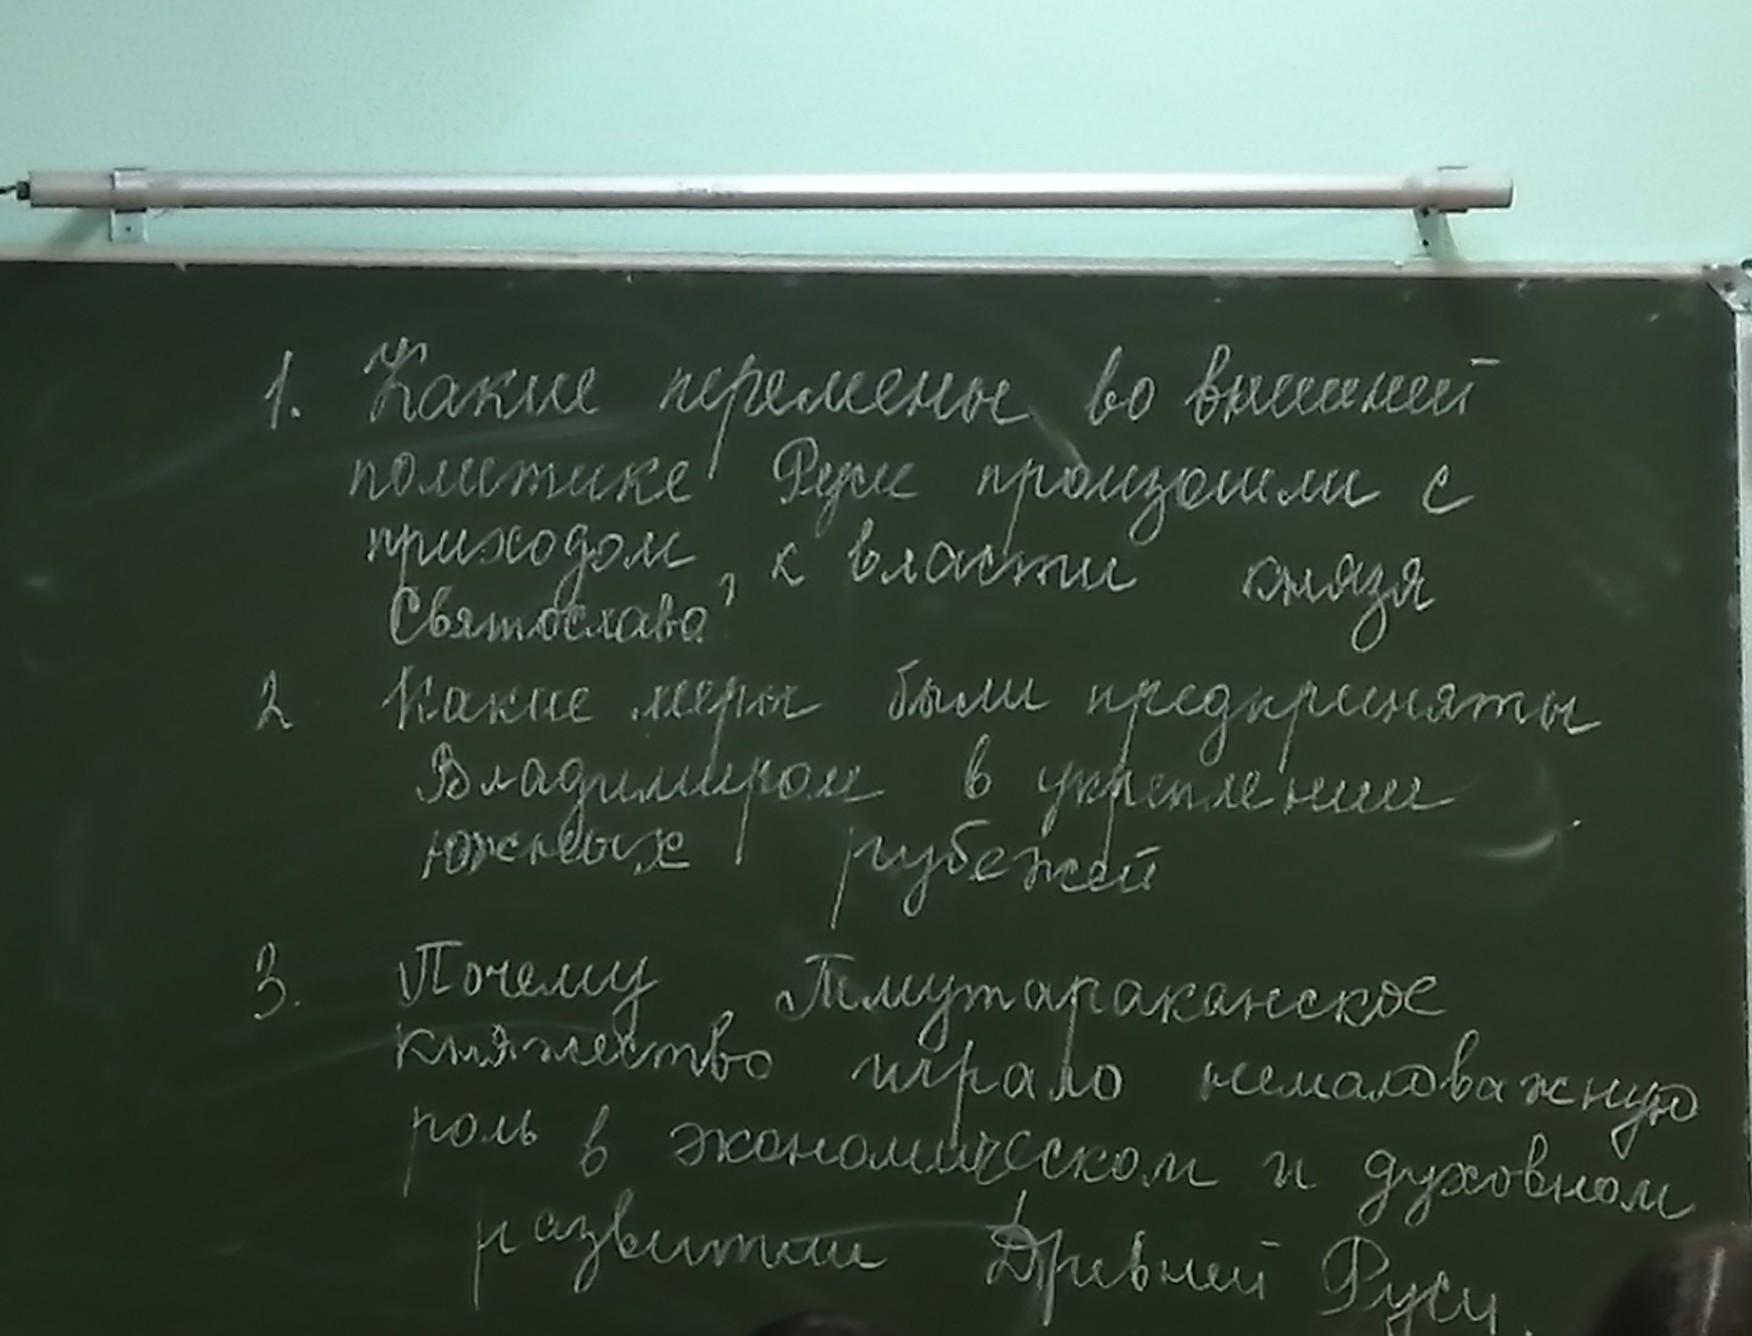 1. Какие перемены во внешней
политике Руси произошли с
приходом к власти князя
Святослава?
2 Какие меры были предприняты
Владимиром в укреплении
южных рубежей
3. Почему Тмутараканское
княжество играло немаловажную
роль в экономическом и духовном
развитии Древней Руси.